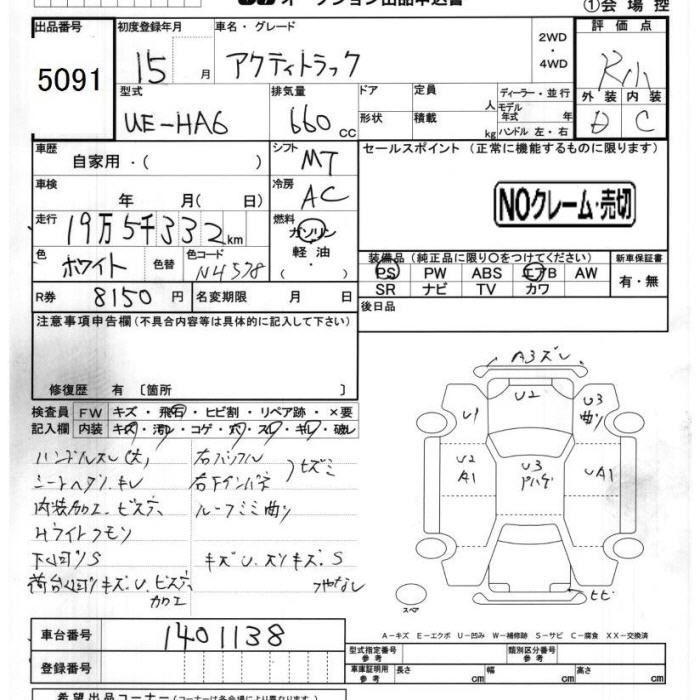 オークション出品申込書
①会場控
出品番号 初度登録年月 車名・グレード 評価点
5091 15 月 アクティトラック 2WD・4WD R小
外装 内装
D C
型式 排気量 ドア 定員 人 ディーラー・並行
UE-HA6 660 CC 形状 積載 kg モデル年式 年
ハンドル 左・右
車歴 自家用・( ) シフト MT セールスポイント(正常に機能するものに限ります)
車検 年 月( 日) 冷房 AC
NOクレーム・売切
走行 19万5千332km 燃料 ガソリン・軽油・( )
色 ホワイト 色替 色コード N4578
装備品(純正品に限り○をつけてください) 新車保証書
PS PW ABS エアB AW 有・無
SR ナビ TV カワ
R券 8150円 名変期限 月 日 後日品
注意事項申告欄(不具合内容等は具体的に記入して下さい)
修復歴 有 [箇所 ]
検査員 FW キズ・飛石・ヒビ割・リペア跡・×要
記入欄 内装 キズ・汚レ・コゲ・穴・スレ・キレ・破レ
ハンドルスレ(大)
シートヘタリ、キレ
内装加工、ビス穴
下回りS
荷台回りキズU、ビス穴
加工
キズU、スリキズ、S
ツヤなし
A3ズレ
U2
U1
U3
曲り
U2
A1
U3
UA1
ヒビ
スペア
A-キズ E-エクボ U-凹み W-補修跡 S-サビ C-腐食 XX-交換済
車台番号 1401138
登録番号
型式指定番号 参考 類別区分番号 参考
車庫証明用 参考 長さ cm 幅 cm 高さ cm
希望出品コーナー(コーナーは各会場により異なります)